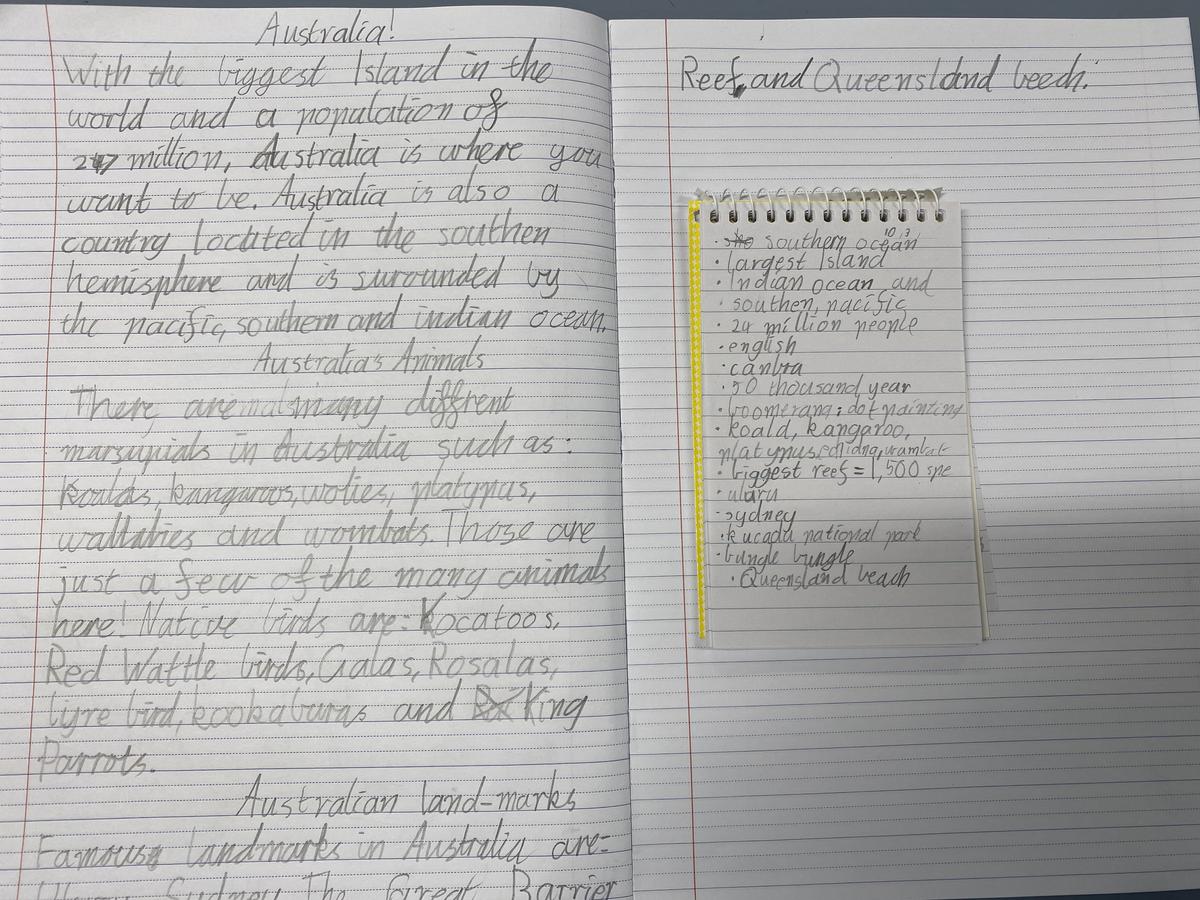 Australia!
With the biggest Island in the
world and a population of
million, Australia is where you
want to be. Australia is also a
country located in the southen
hemisphere and is surounded by
the pacific, southern and indian ocean.
Australia's Animals
There, are many diffrent
marsupials in Australia such as:
koalas, kangaroos, woties, platypus,
wallabies and wombats. Those are
just a few of the many animals
here! Native birds are: Kocatoos,
Red Wattle birds, Galas, Rosalas,
lyre bird, kookaburas and King
Parrots.
Australian land-marks
Famous landmarks in Australia are-
Sydney The Great Barrier
Reef, and Queensland beech.
• southern ocean
• largest Island
• Indian ocean and
southen, pacific
• 24 million people
• english
• canbra
• 50 thousand year
• boomerang: dot painting
• koala, kangaroo,
platypus, wambat
• biggest reef = 1,500 spe
• uluru
• sydney
• kucadu national park
• bungle bungle
• Queensland beach